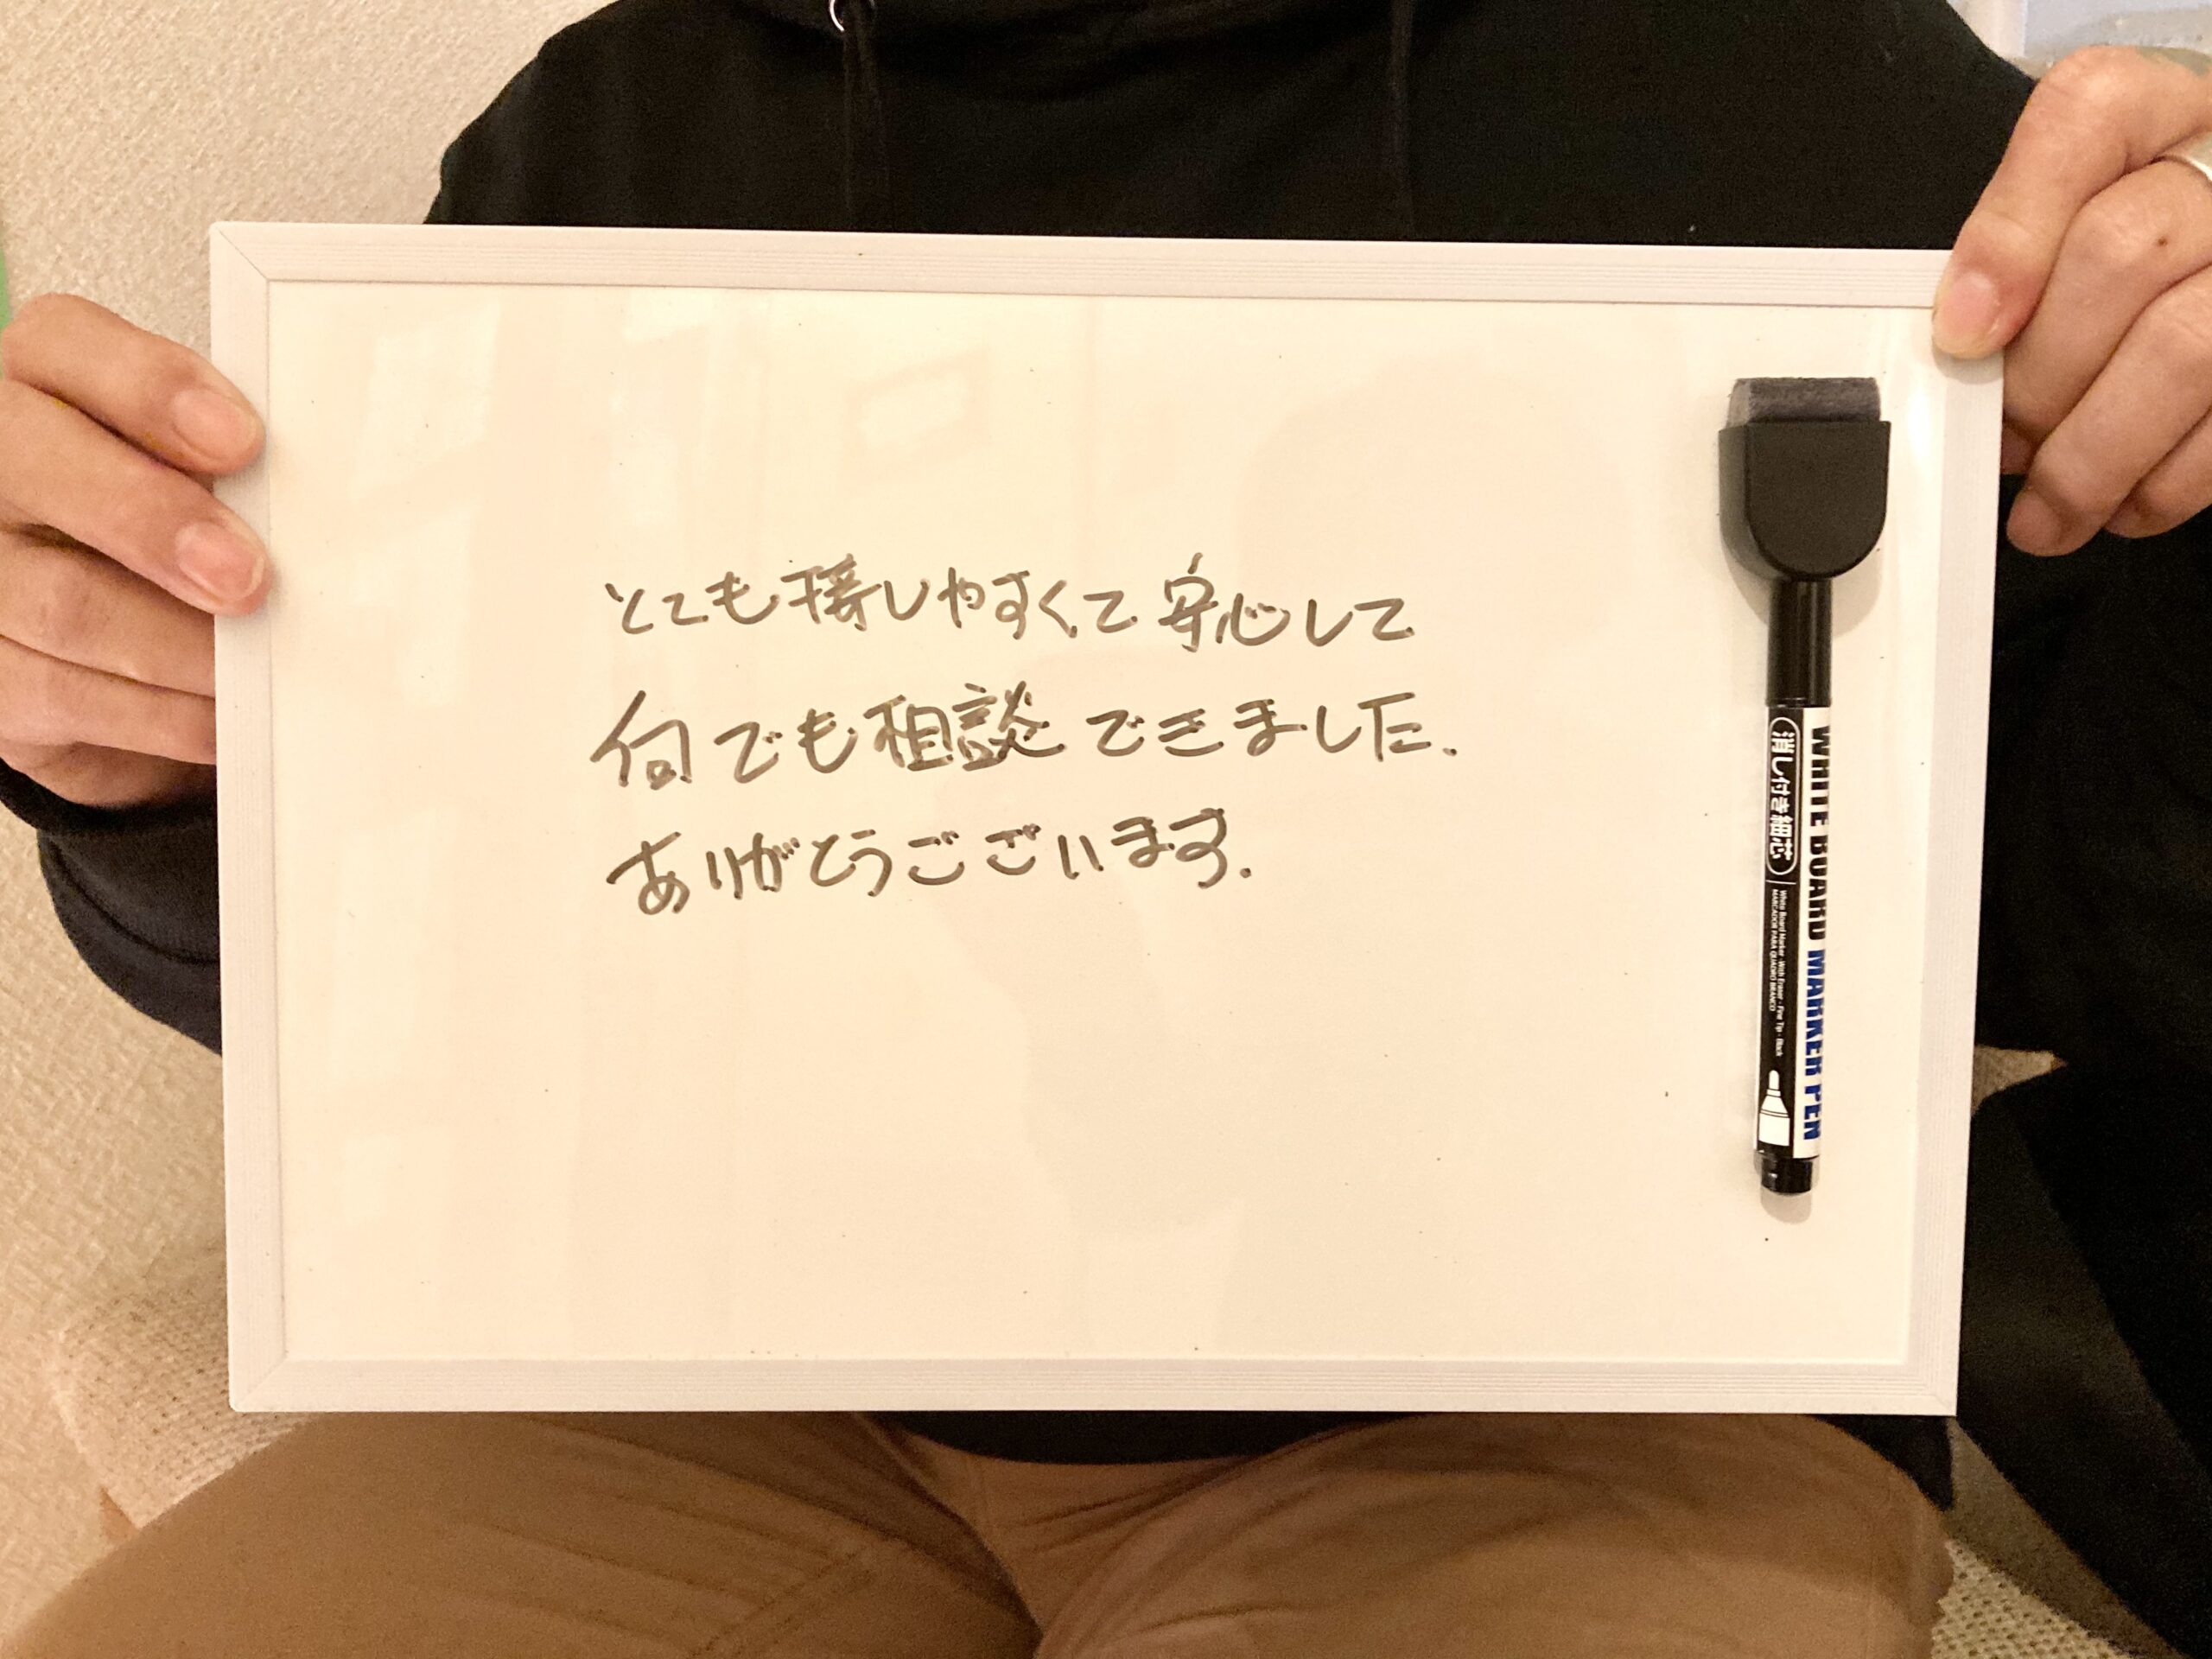 とても接しやすくて安心して
何でも相談できました.
ありがとうございます.
WHITE BOARD MARKER PEN
消し付き 細芯
White Board Marker · With Eraser · Fine Tip · Black
MARCADOR PARA QUADRO BRANCO